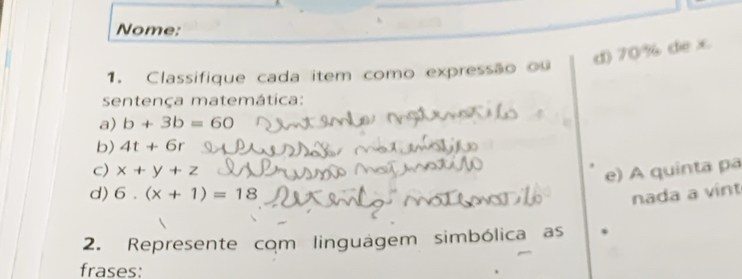 Nome:
1. Classifique cada item como expressão ou
sentença matemática:
a) b + 3b = 60 Sentenda matematica
b) 4t + 6r expressão matematica
c) x + y + z expressão matematica
d) 6 . (x + 1) = 18 matematica
2. Represente com linguagem simbólica as
frases:
d) 70% de x.
e) A quinta pa
nada a vint